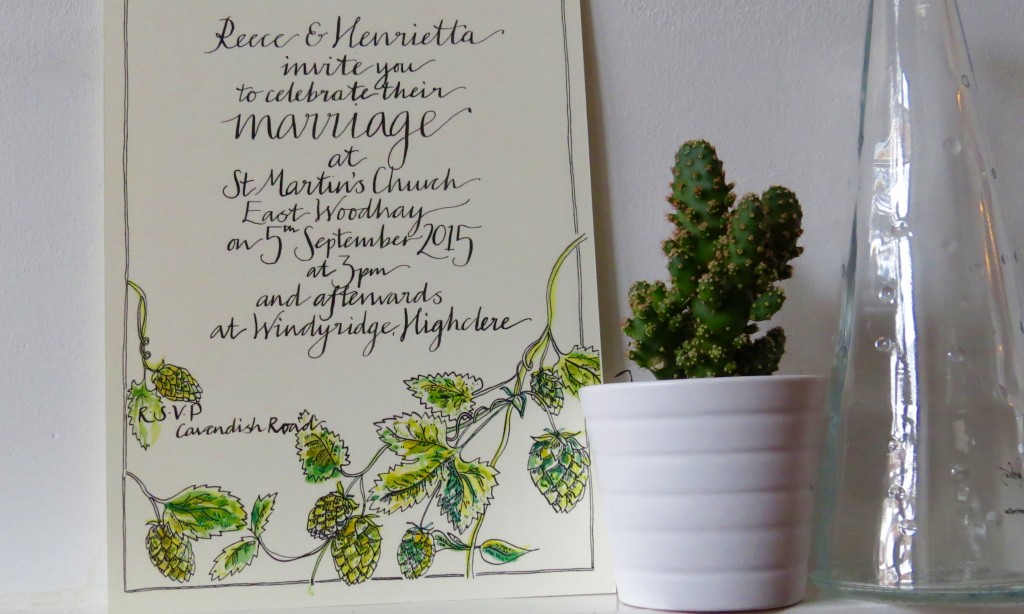 Reece & Henrietta
invite you
to celebrate their
marriage
at
St Martin's Church
East Woodhay
on 5th September 2015
at 3pm
and afterwards
at Windyridge, Highclere
R.S.V.P
Cavendish Road